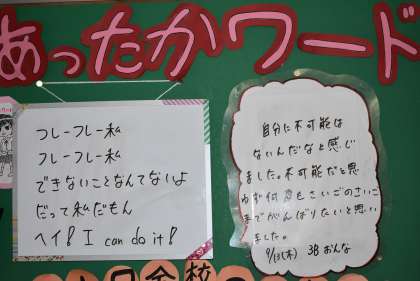 あったかワード
フレーフレー私
フレーフレー私
できないことなんてないよ
だって私だもん
ヘイ! I can do it!
自分に不可能は
ないんだなと感じ
ました。不可能だと思
わず何度もさいごのさいご
までがんばりたいと思い
ました。
9/13(木) 3B おんな